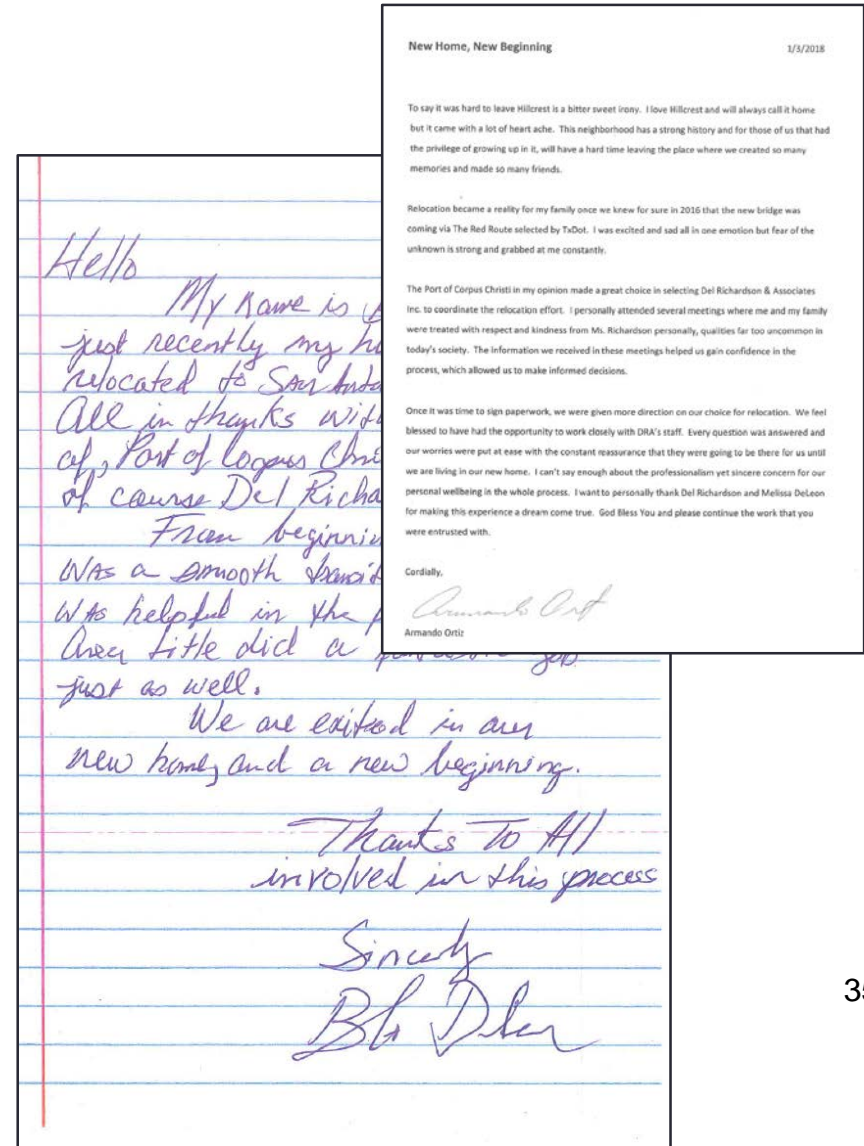 New Home, New Beginning 1/3/2018
To say it was hard to leave Hillcrest is a bitter sweet irony. I love Hillcrest and will always call it home
but it came with a lot of heart ache. This neighborhood has a strong history and for those of us that had
the privilege of growing up in it, will have a hard time leaving the place where we created so many
memories and made so many friends.
Relocation became a reality for my family once we knew for sure in 2016 that the new bridge was
coming via The Red Route selected by TxDot. I was excited and sad all in one emotion but fear of the
unknown is strong and grabbed at me constantly.
The Port of Corpus Christi in my opinion made a great choice in selecting Del Richardson & Associates
Inc. to coordinate the relocation effort. I personally attended several meetings where me and my family
were treated with respect and kindness from Ms. Richardson personally, qualities far too uncommon in
today's society. The information we received in these meetings helped us gain confidence in the
process, which allowed us to make informed decisions.
Once it was time to sign paperwork, we were given more direction on our choice for relocation. We feel
blessed to have had the opportunity to work closely with DRA's staff. Every question was answered and
our worries were put at ease with the constant reassurance that they were going to be there for us until
we are living in our new home. I can't say enough about the professionalism yet sincere concern for our
personal wellbeing in the whole process. I want to personally thank Del Richardson and Melissa DeLeon
for making this experience a dream come true. God Bless You and please continue the work that you
were entrusted with.
Cordially,
Armando Ortiz
Hello
My Name is
just recently my
relocated to San
All in thanks
of, Port of Corpus
of course Del
From
was a smooth
was helpful in the
Area title did a job
just as well.
We are exited in our
new home, and a new beginning.
Thanks To All
involved in this process
Sincerly
35